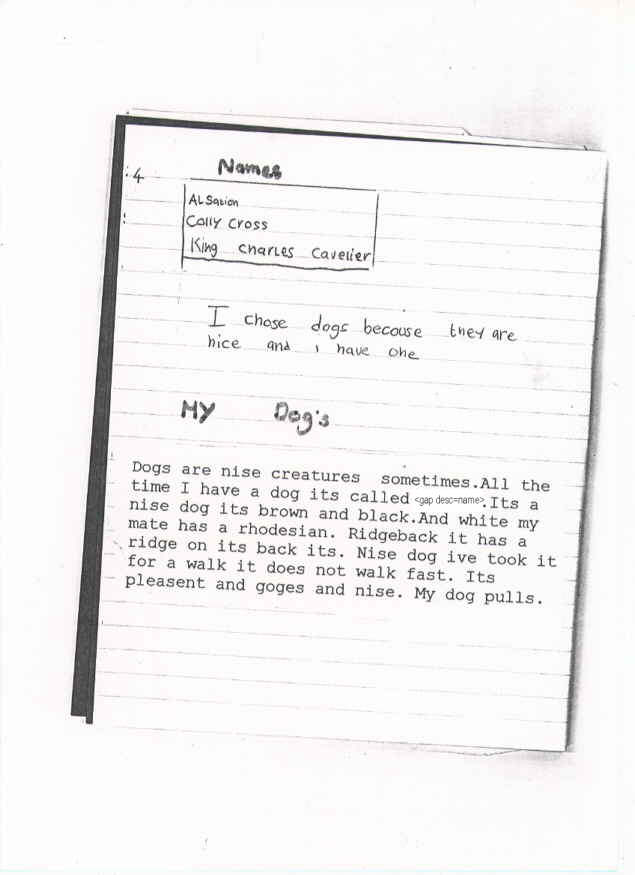 Names
:4
ALSation
Colly Cross
King Charles Cavelier
I chose dogs becouse they are
nice and i have one
MY Dog's
Dogs are nise creatures sometimes.All the
time I have a dog its called <gap desc=name>.Its a
nise dog its brown and black.And white my
mate has a rhodesian. Ridgeback it has a
ridge on its back its. Nise dog ive took it
for a walk it does not walk fast. Its
pleasent and goges and nise. My dog pulls.